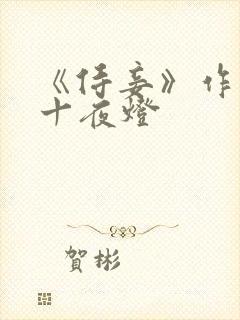 《侍妾》作
十夜燈
賀彬